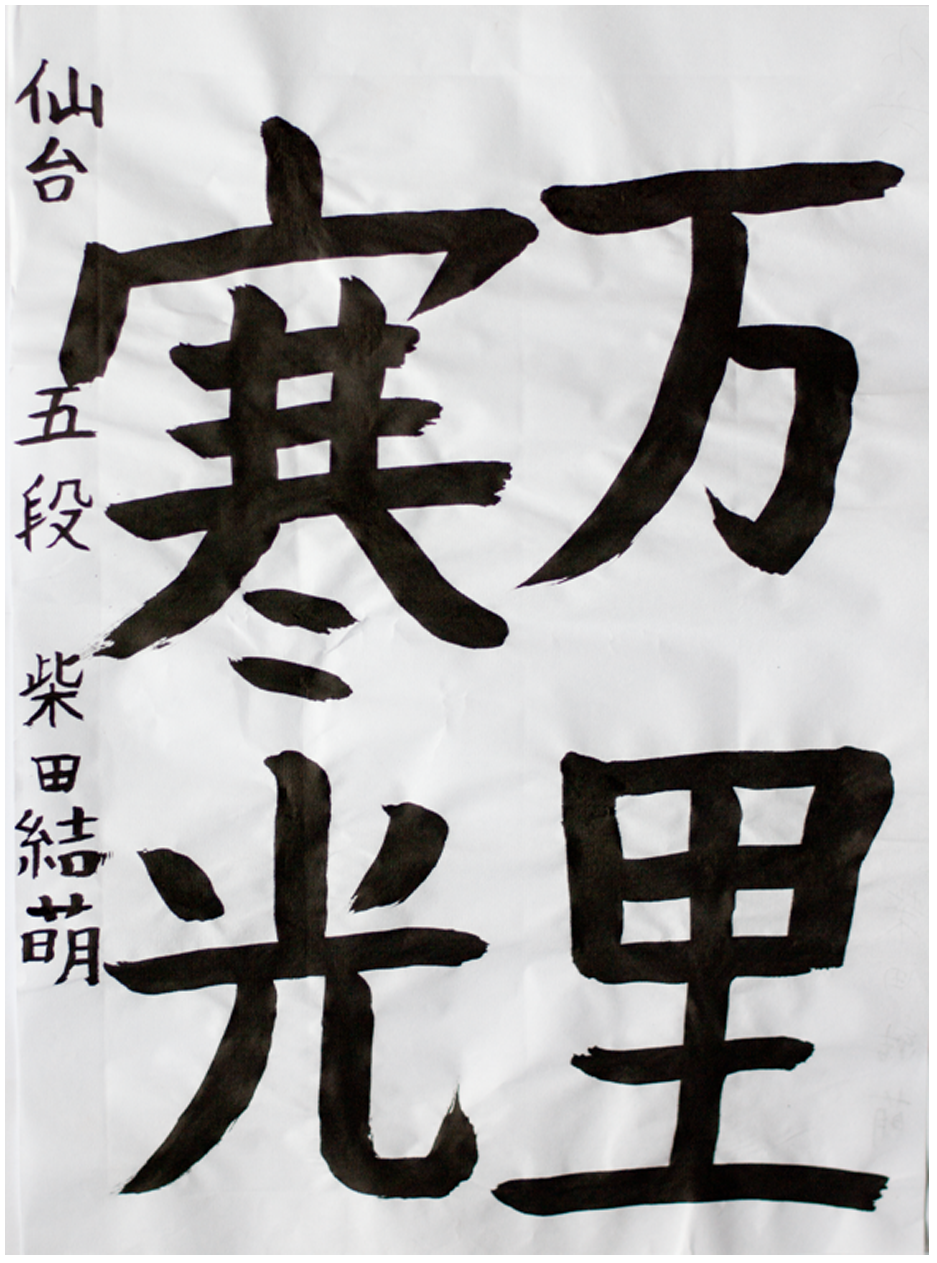 万里
寒光
仙台 五段 柴田結萌